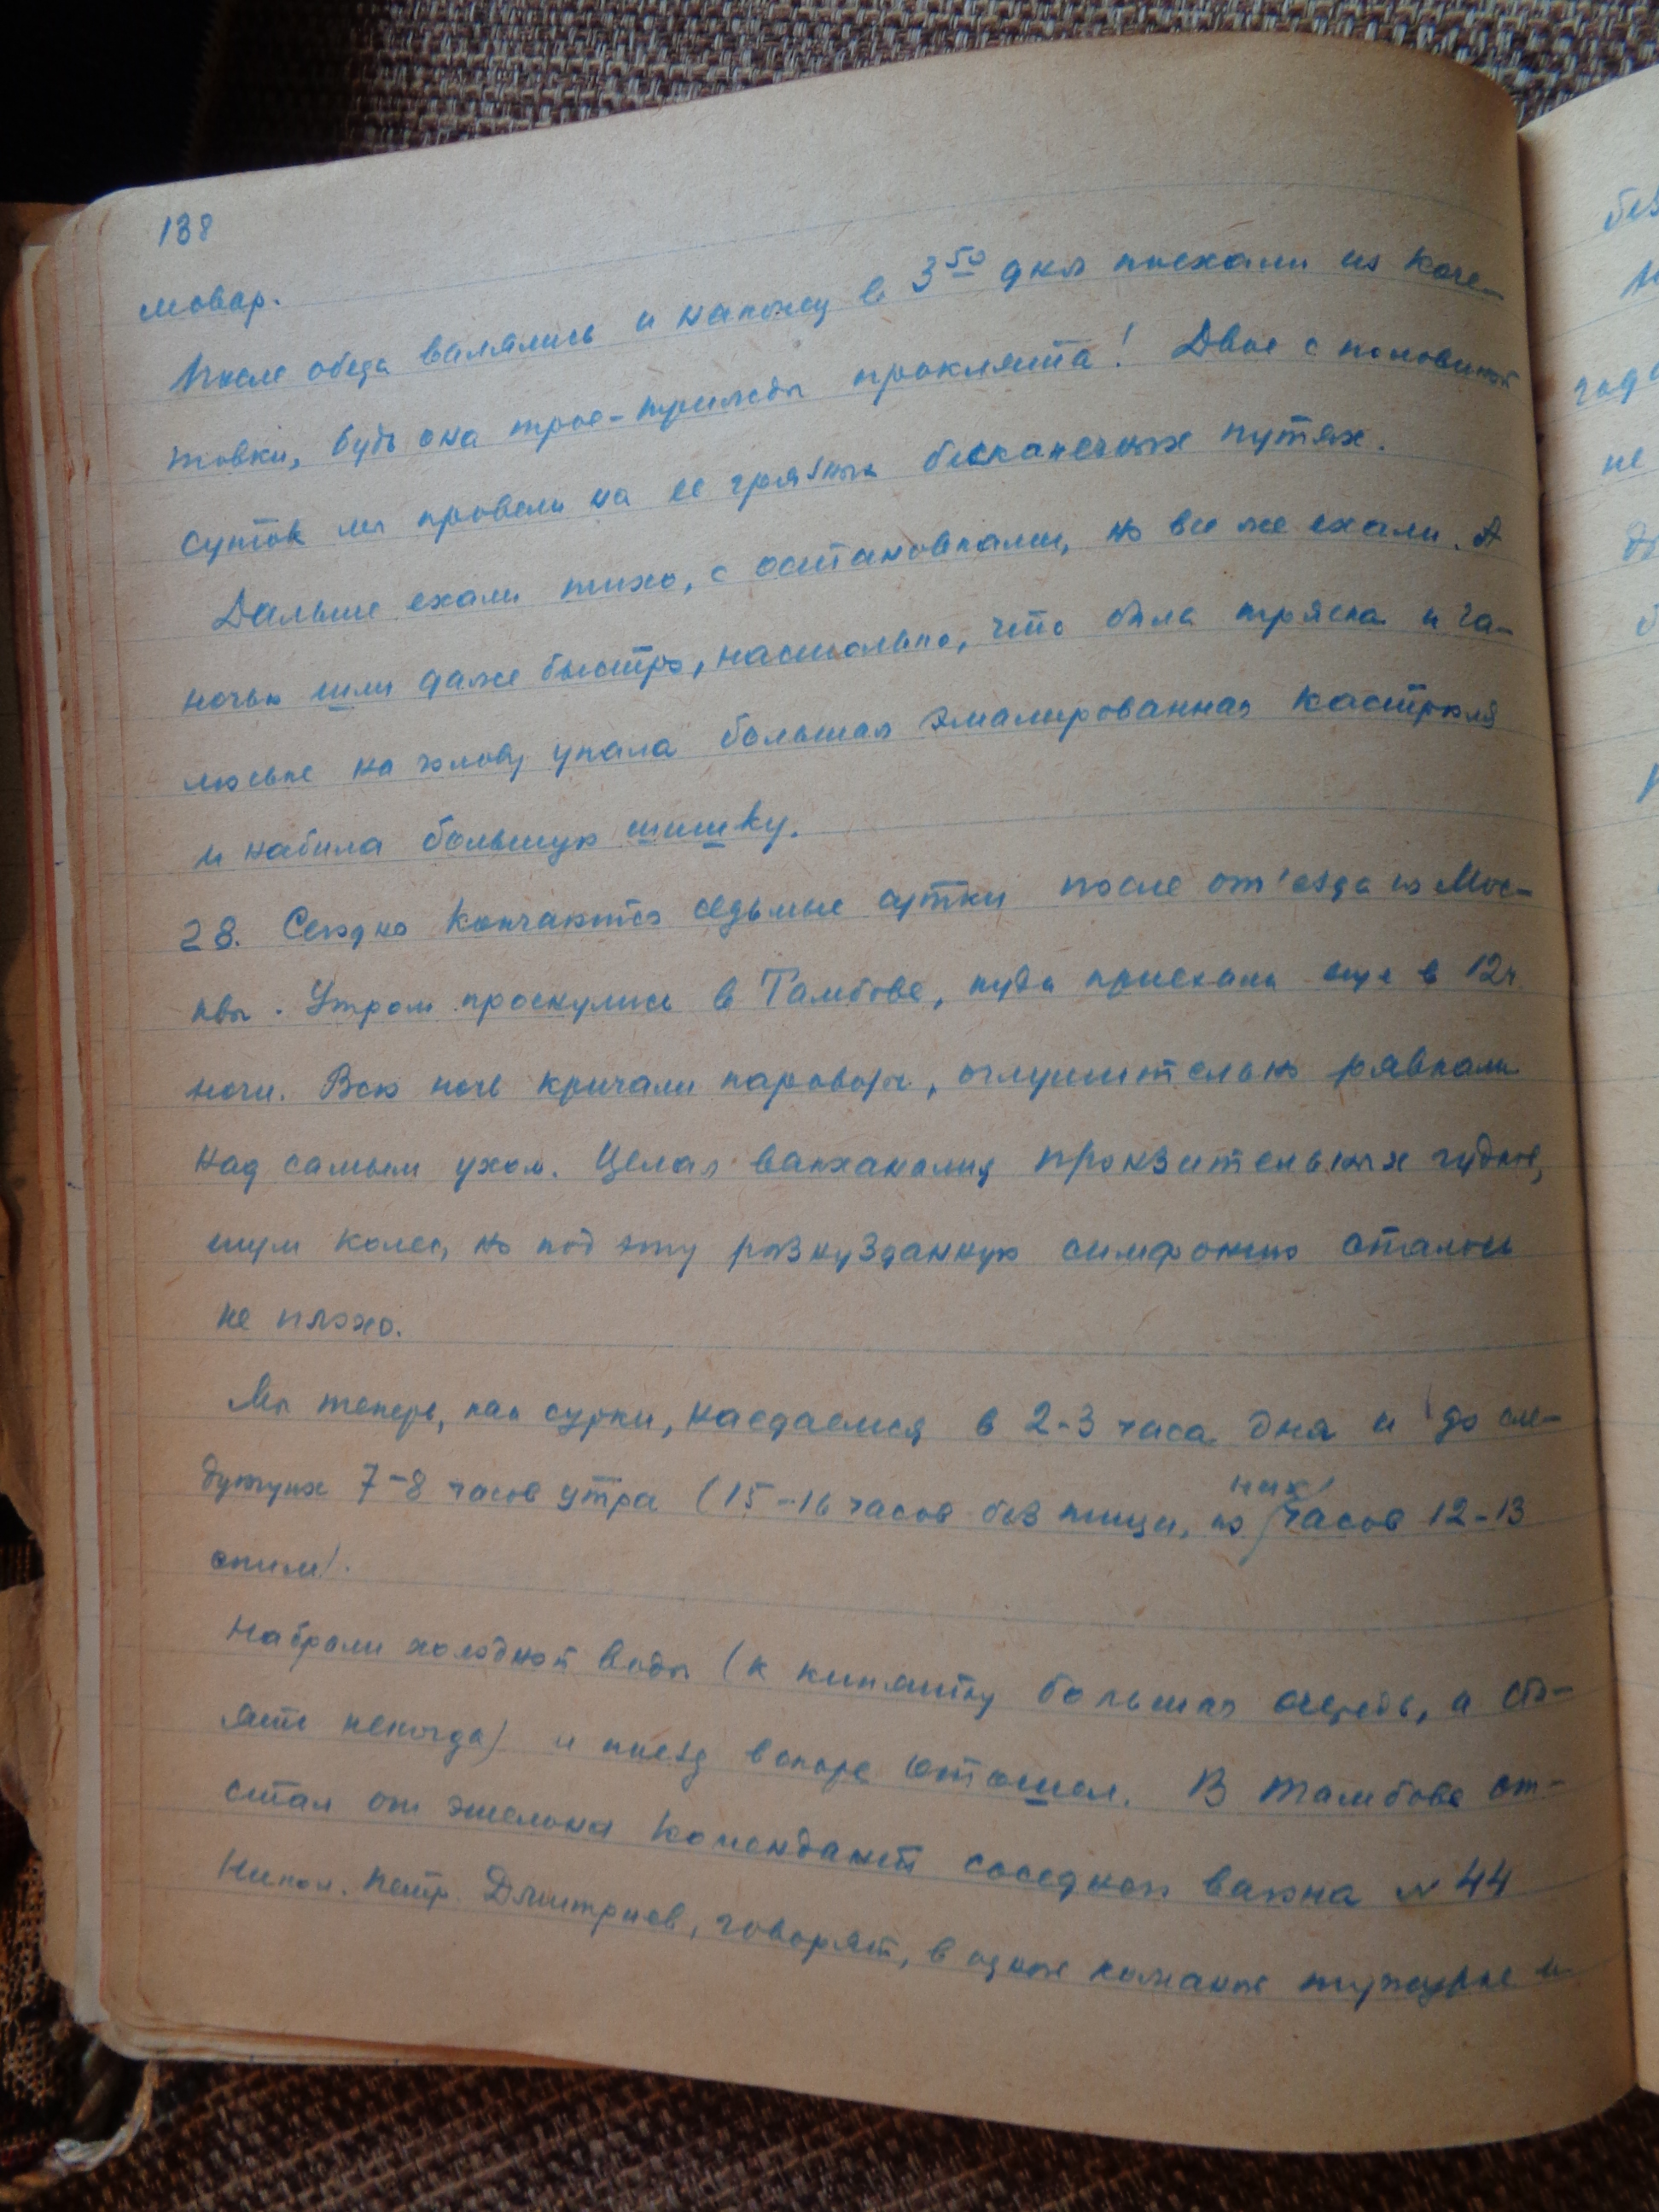 138
мовар.
После обеда валялись и наконец в 3 50 дня поехали из Коче-
товки, будь она трое-трижды проклята! Двое с половиной
суток мы провели на ее грязных бесконечных путях.
Дальше ехали тихо, с остановками, но все же ехали. А
ночью шли даже быстро, настолько, что была тряска и Га-
люське на голову упала большая эмалированная кастрюля
и набила большую шишку.
28. Сегодня кончаются седьмые сутки после от'езда из Мос-
квы. Утром проснулись в Тамбове, куда приехали еще в 12ч.
ночи. Всю ночь кричали паровозы, оглушительно рявкали
над самым ухом. Целая вакханалия пронзительных гудков,
шум колес, но под эту разнузданную симфонию спалось
не плохо.
Мы теперь, как сурки, наедаемся в 2-3 часа дня и до сле-
дующих 7-8 часов утра (15-16 часов без пищи, из них часов 12-13
спим).
Набрали холодной воды (к кипятку большая очередь, а сто-
ять некогда) и поезд вскоре отошел. В Тамбове от-
стал от эшелона комендант соседнего вагона № 44
Никол. Петр. Дмитриев, говорят, в одной пижаме тужурке и
без
не